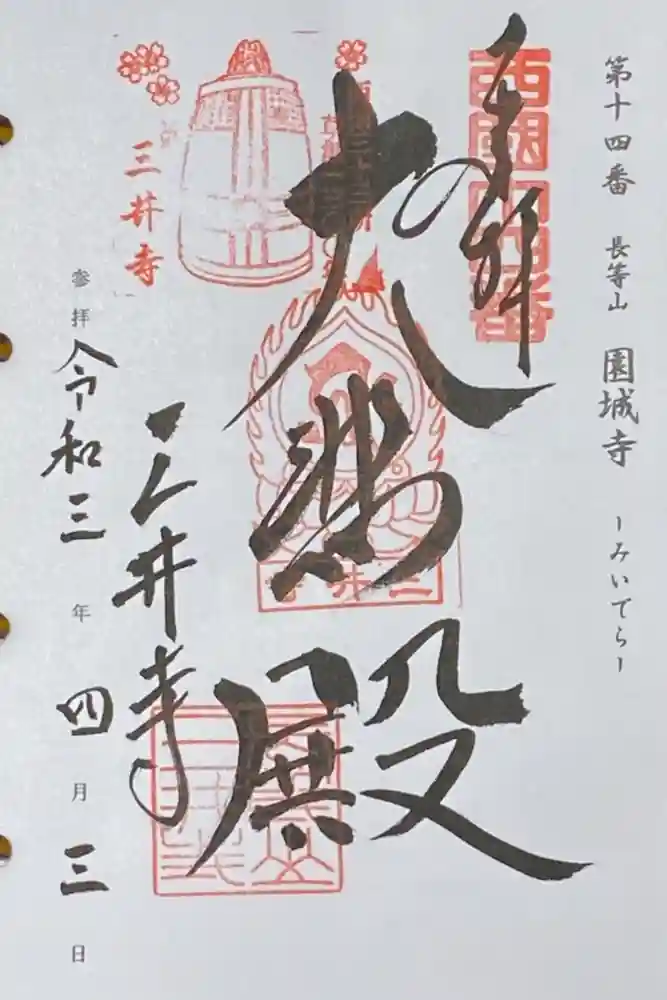 第十四番 長等山 園城寺 ーみいでらー
奉拝
西國十四番
大悲殿
三井寺
三井寺
三井寺
参拝 令和三年 四月 三日